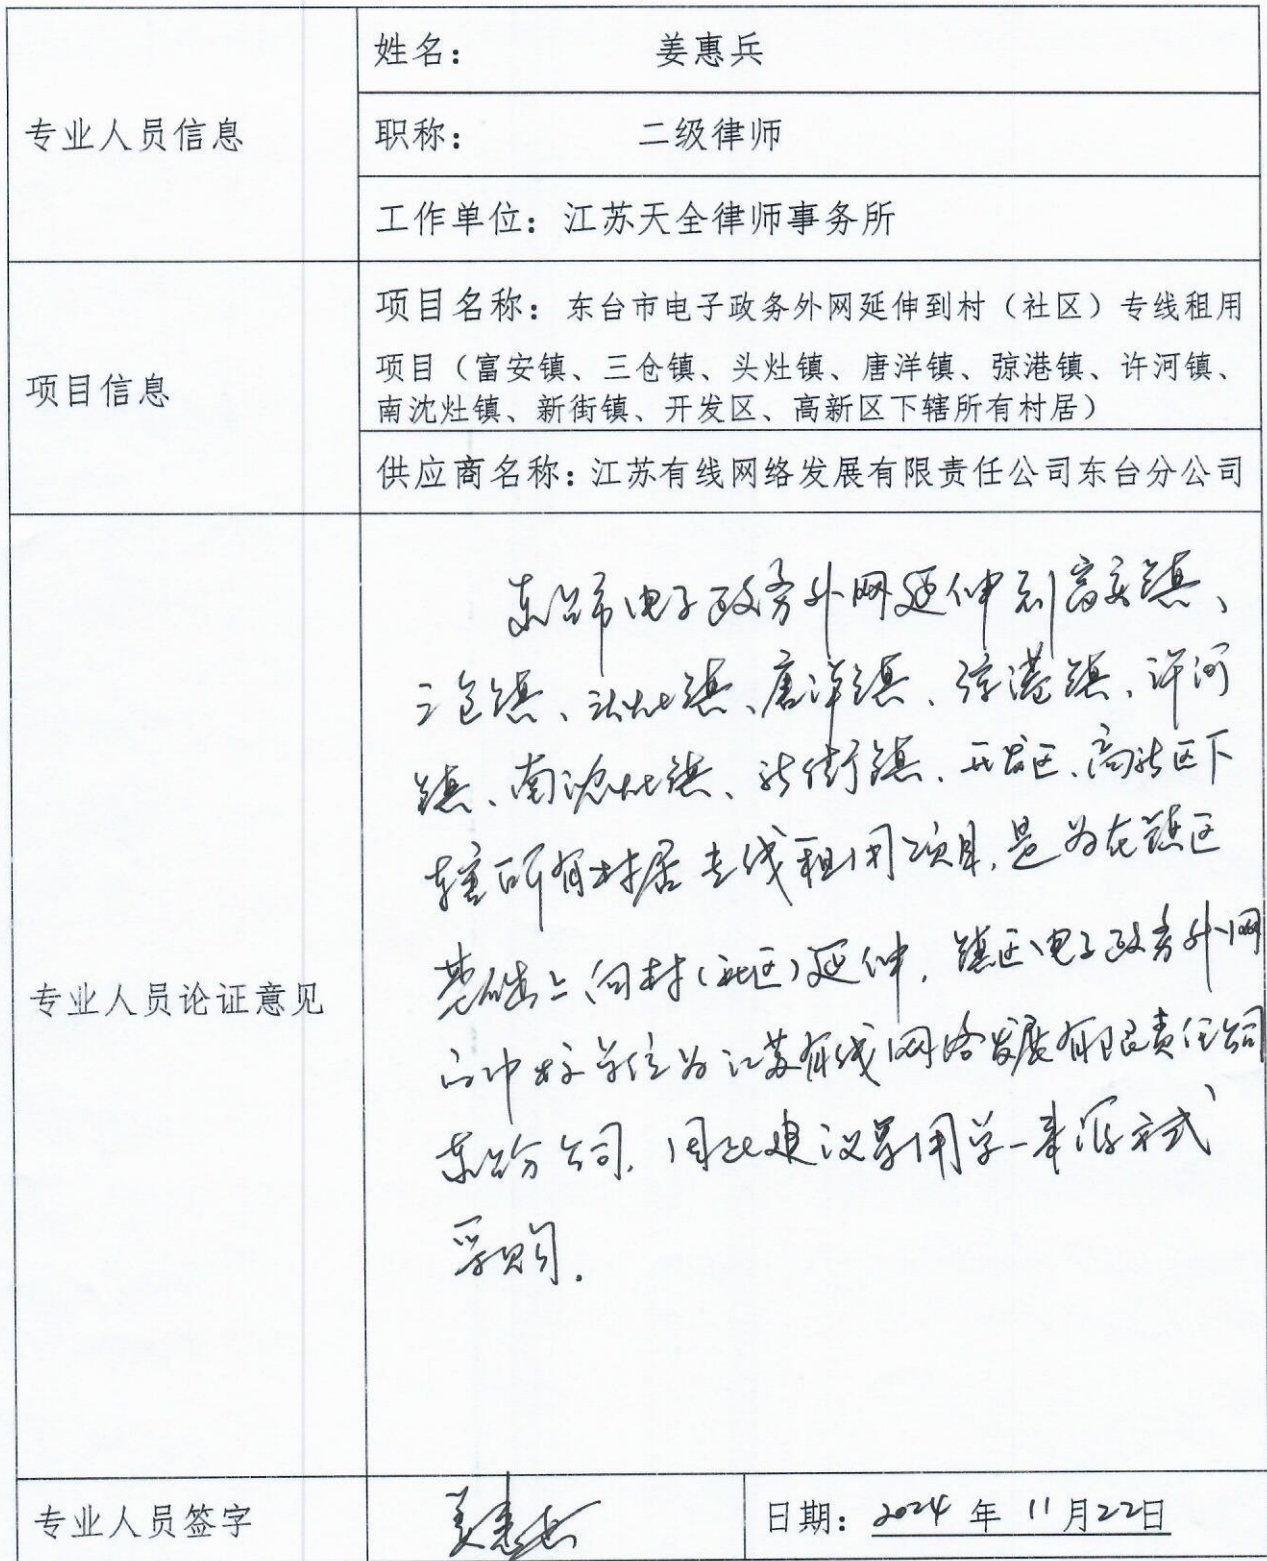 姓名： 姜惠兵
专业人员信息
职称： 二级律师
工作单位：江苏天全律师事务所
项目名称：东台市电子政务外网延伸到村（社区）专线租用
项目信息
项目（富安镇、三仓镇、头灶镇、唐洋镇、弶港镇、许河镇、
南沈灶镇、新街镇、开发区、高新区下辖所有村居）
供应商名称：江苏有线网络发展有限责任公司东台分公司
专业人员论证意见
东台市电子政务外网延伸到富安镇、
三仓镇、头灶镇、唐洋镇、弶港镇、许河
镇、南沈灶镇、新街镇、开发区、高新区下
辖所有村居专线租用项目，是为在镇区
基础上向村（社区）延伸，镇区电子政务外网
的中标单位为江苏有线网络发展有限责任公司
东台分公司，因此建议采用单一来源方式
采购.
专业人员签字 姜惠兵 日期：2024 年 11 月 22 日